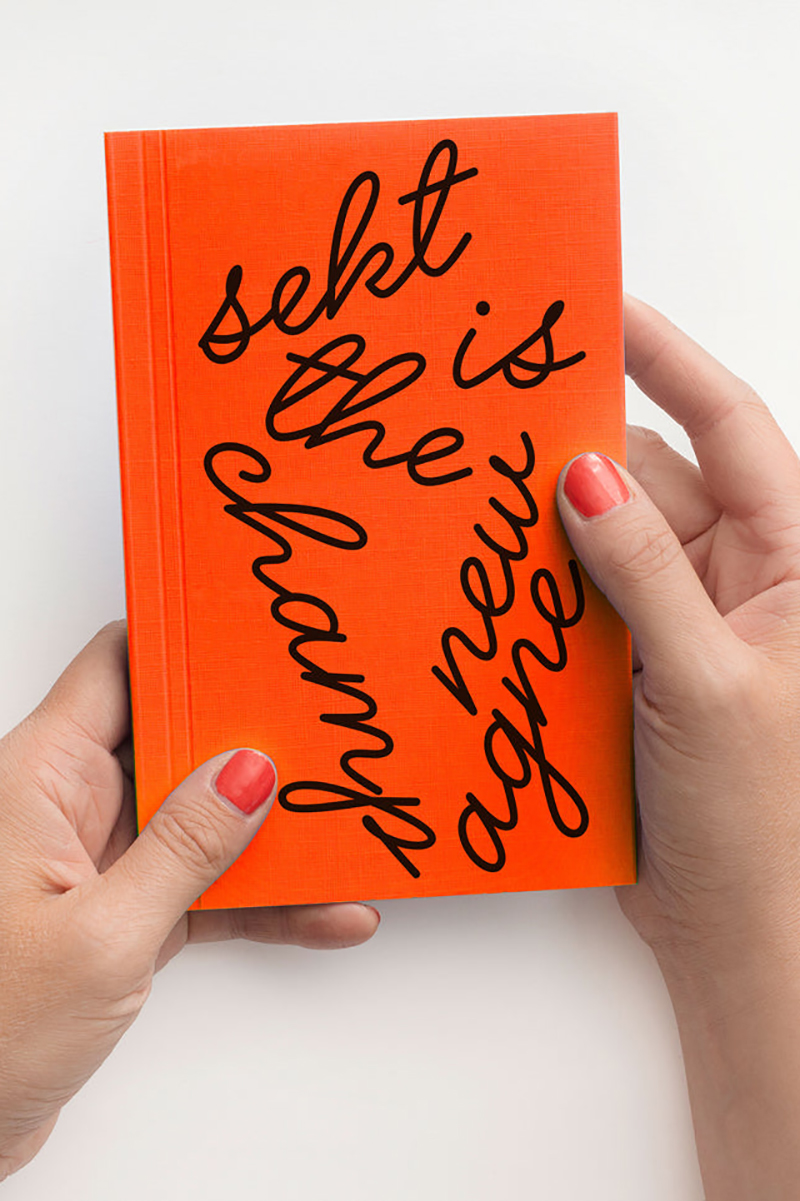 sekt
is
the
new
champ
agne